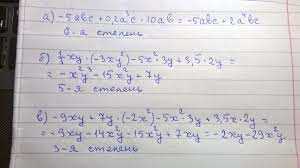 а) -5abc + 0,2a²c · 10ab = -5abc · 2a³bc
6-я степень
б) ⅓xy · (-3xy²) - 5x² · 3y + 3,5 · 2y =
= -x²y³ - 15x²y + 7y
5-я степень
в) -9xy + 7y · (-2x²) - 5x² · 3y + 3,5x · 2y =
= -9xy - 14x²y - 15x²y + 7xy = -2xy - 29x²y
3-я степень